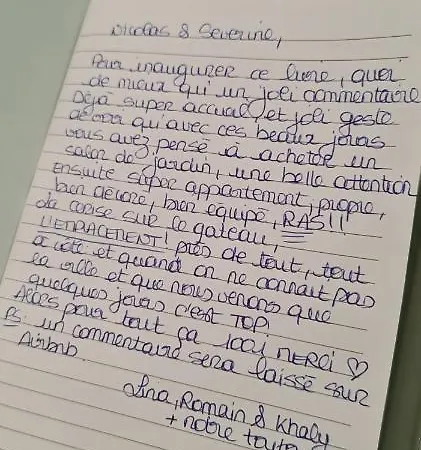 Nicolas & Severine,
Pour inaugurer ce livre, quoi
de mieux qu'un joli commentaire
Déjà super accueil et joli geste
qu'avec ces beaux jours
vous avez pensé à acheter un
salon de jardin, une belle attention
Ensuite super appartement, propre,
bien décoré, bien équipé, RAS!!
la cerise sur le gateau,
L'EMPLACEMENT! près de tout, tout
à coté et quand on ne connait pas
la ville et que nous venons que
quelques jours c'est TOP!
Alors pour tout ça 100x MERCI ♡
PS: un commentaire sera laissé sur
Airbnb
Lina, Romain & Khaly
+ notre